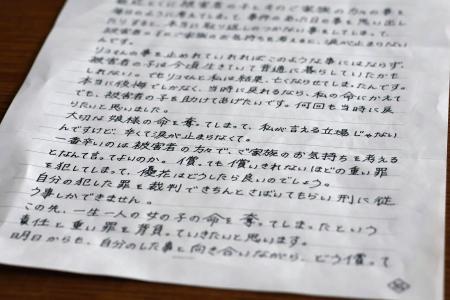 最近とくに被害者の子とそのご家族の方々の事を
被害者の子のご家族のお気持ちを考えると、涙が止まりない
んです。
リコさんの事を止めれていればこのような事にはならず、
被害者の子は今頃生きていて普通に暮らしていたかも
しれない。でもリコさんと私は結果、亡くならせてしまったんです。
本当に後悔でしかなく、当時に戻れるなら、私の命にかえて
でも、被害者の子を助けてあげたいです。何回も当時に戻
りたいと思いました。
大切な娘様の命を奪ってしまって、私が言える立場じゃない
んですけど、辛くて涙が止まらなくて。
一番辛いのは被害者の方々で、ご家族のお気持ちを考える
となんて言ってよいのか。償っても償いきれないほどの重い罪
を犯してしまって、優花はどうしたら良いのでしょう。
自分の犯した罪を裁判できちんとさばいてもらい刑に従
う事しかできません。
この先、一生一人の女の子の命を奪ってしまったという
責任と重い罪を背負っていきたいと思います。
明日からも、自分のした事と向き合いながら、どう償って